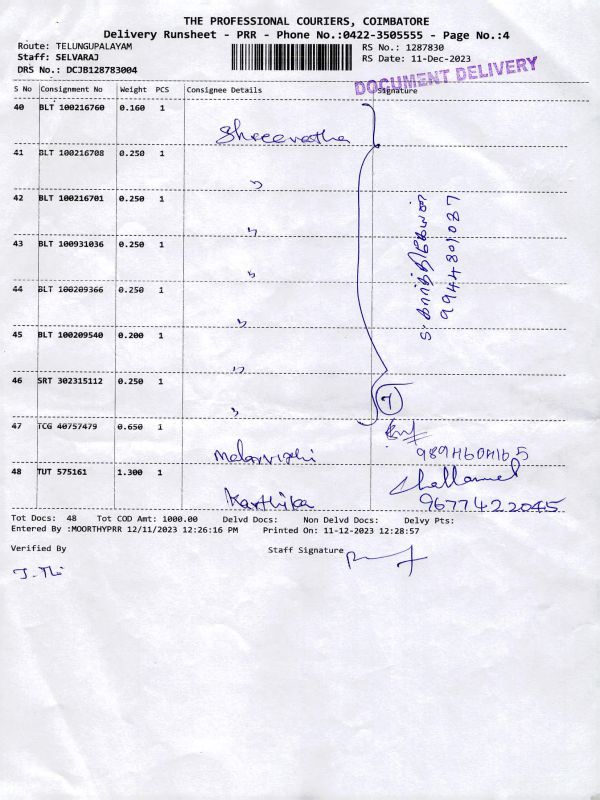 THE PROFESSIONAL COURIERS, COIMBATORE
Delivery Runsheet - PRR - Phone No.:0422-3505555 - Page No.:4
Route: TELUNGUPALAYAM
RS No.: 1287830
Staff: SELVARAJ
RS Date: 11-Dec-2023
DRS No.: DCJB128783004
DOCUMENT DELIVERY
S No Consignment No Weight PCS Consignee Details Signature
40 BLT 100216760 0.160 1
41 BLT 100216708 0.250 1
"
42 BLT 100216701 0.250 1
"
43 BLT 100931036 0.250 1
"
44 BLT 100209366 0.250 1
"
45 BLT 100209540 0.200 1
"
46 SRT 302315112 0.250 1
"
7
ச. கார்த்திகேயன்
9944801087
47 TCG 40757479 0.650 1
Malarvizhi
9894604165
48 TUT 575161 1.300 1
Karthika
9677422045
Tot Docs: 48 Tot COD Amt: 1000.00 Delvd Docs: Non Delvd Docs: Delvy Pts:
Entered By :MOORTHYPRR 12/11/2023 12:26:16 PM Printed On: 11-12-2023 12:28:57
Verified By
Staff Signature